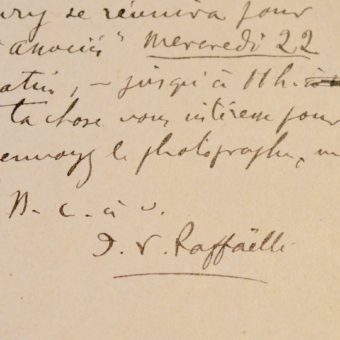 ury se réunira pour
"associés" Mercredi 22
matin, – jusqu'à 11h.
ta chose vous intéresse pour
envoyez le photographe,
B. c. à v.
J. F. Raffaëlli